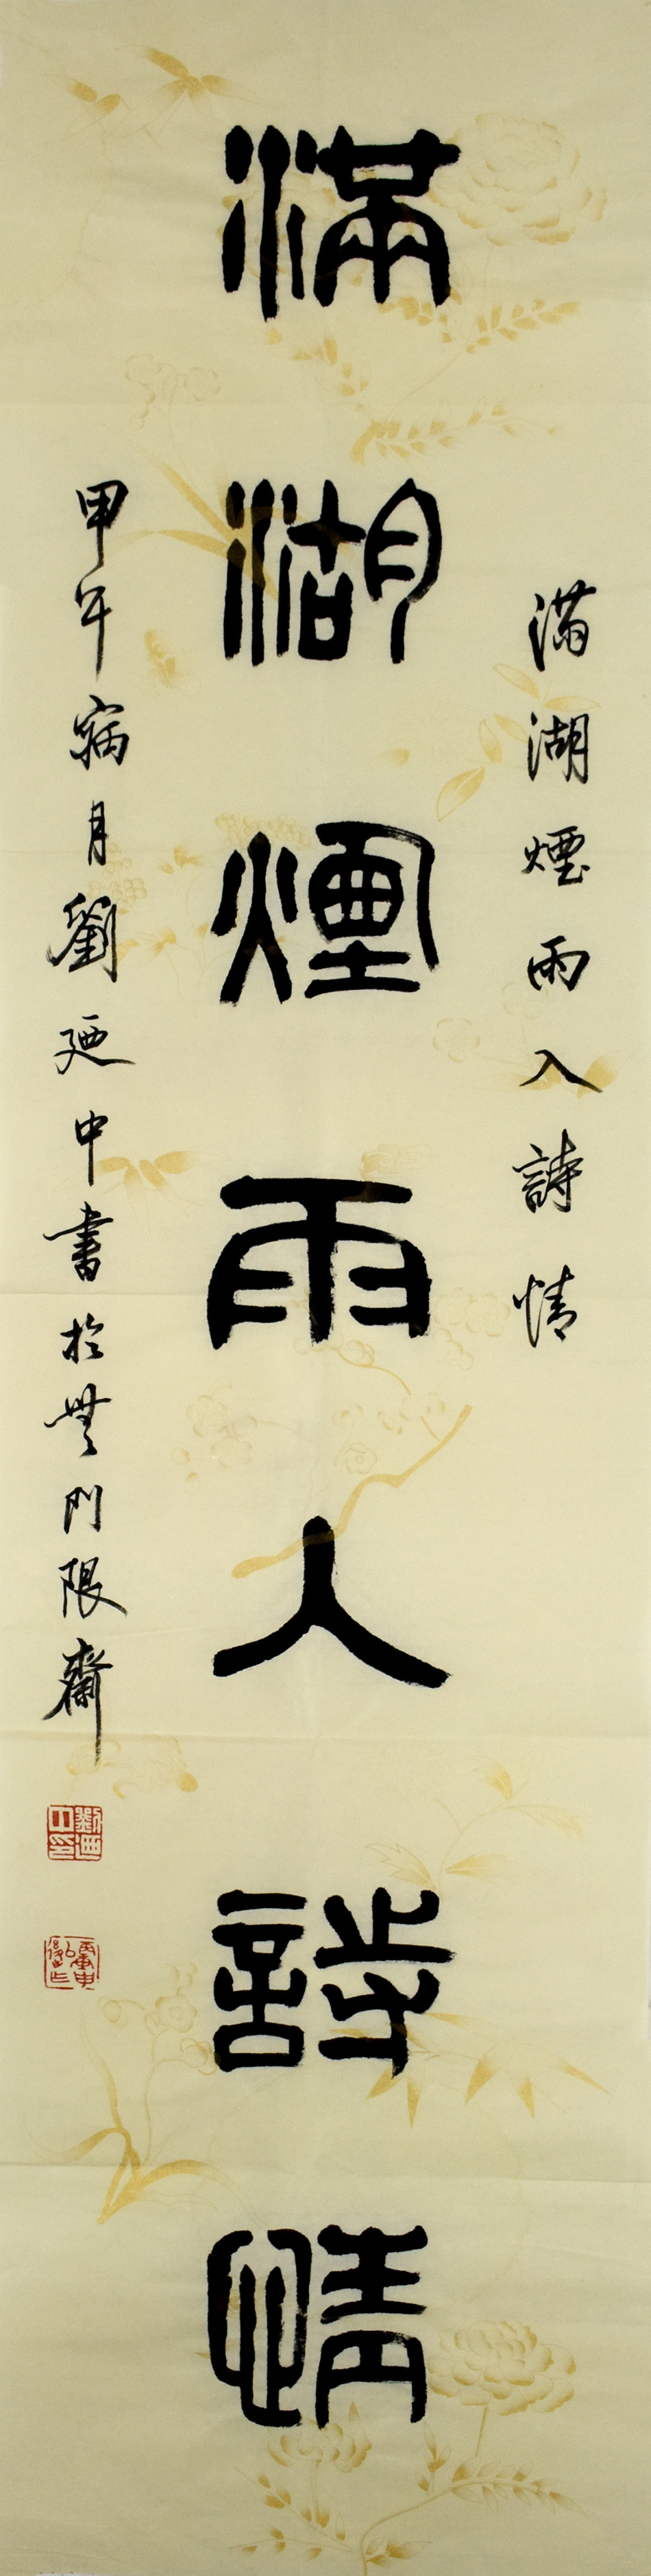 滿湖煙雨入詩情
滿湖煙雨入詩情
甲午寎月劉廼中書於無門限齋